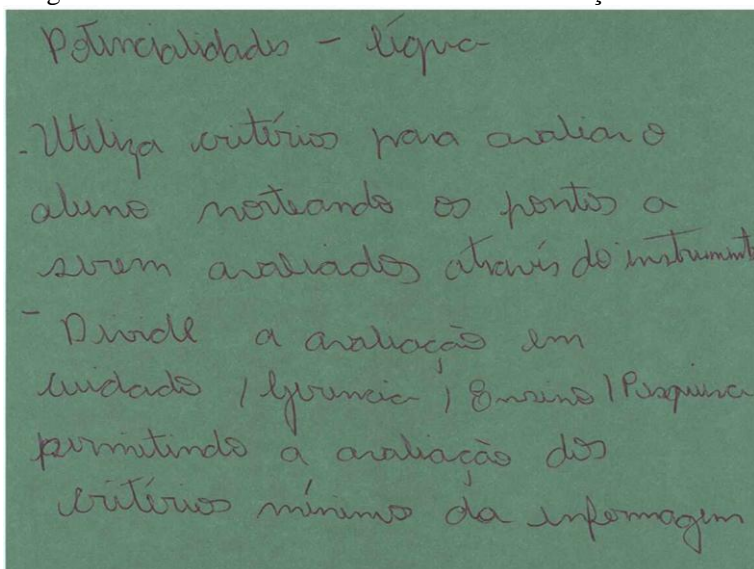 Potencialidades - lígua
- Utiliza critérios para avaliar o
aluno norteando os pontos a
serem avaliados através do instrumento
- Divide a avaliação em
cuidado / Gerencia / Ensino / Pesquisa
permitindo a avaliação dos
critérios mínimo da enfermagem